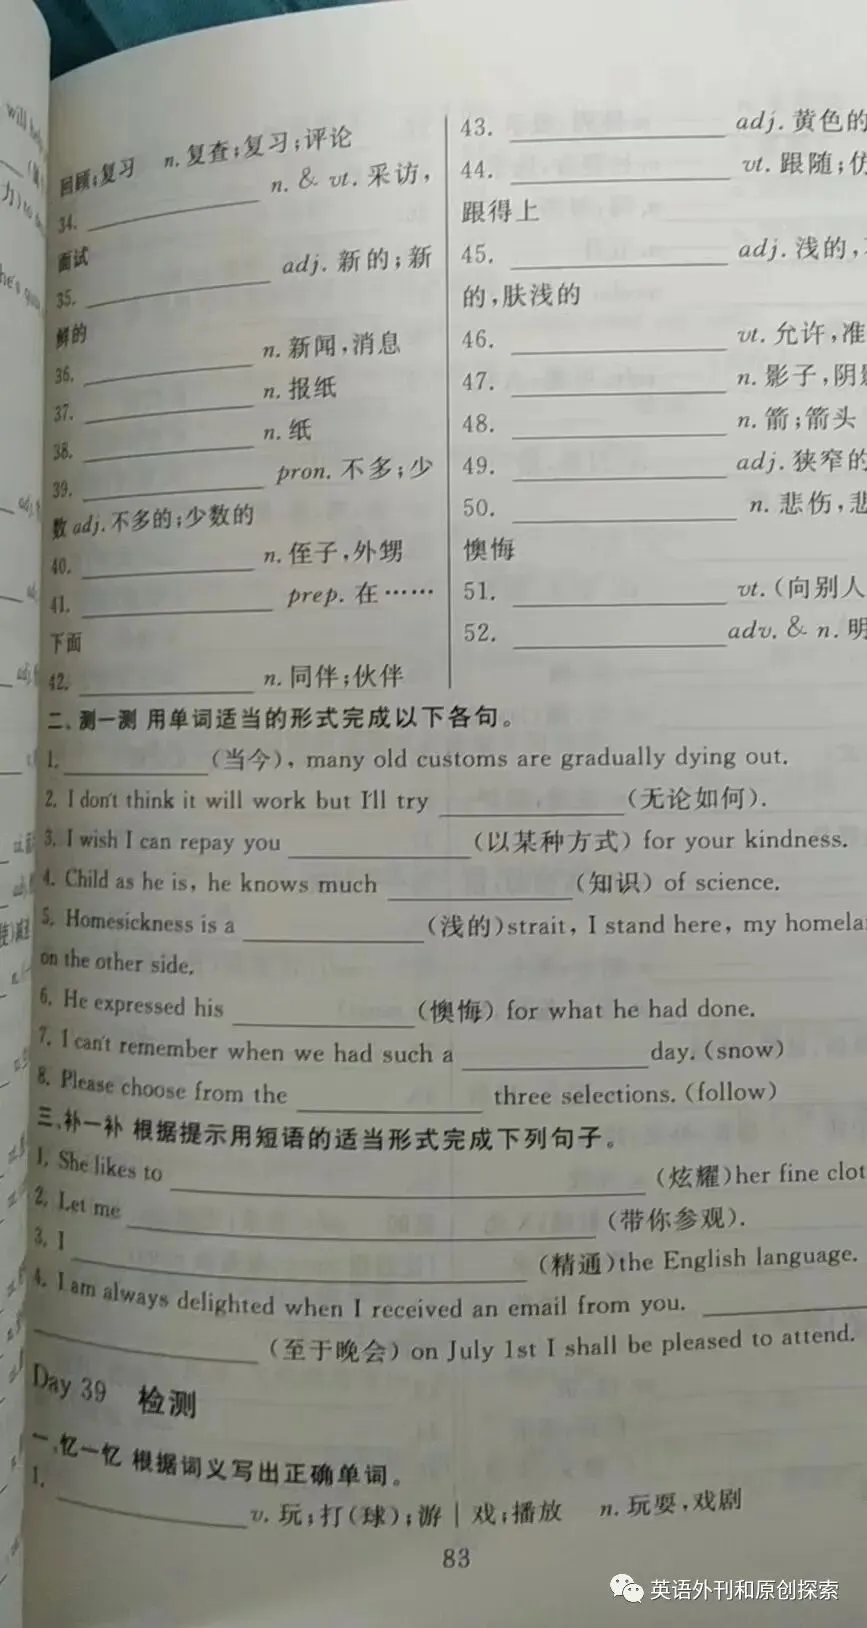 回顾;复习 n.复查;复习;评论
34. n. & vt. 采访,
面试
35. adj. 新的;新
鲜的
36. n. 新闻,消息
37. n. 报纸
38. n. 纸
39. pron. 不多;少
数 adj. 不多的;少数的
40. n. 侄子,外甥
41. prep. 在……
下面
42. n. 同伴;伙伴
43. adj. 黄色的
44. vt. 跟随;仿
跟得上
45. adj. 浅的,
的,肤浅的
46. vt. 允许,准
47. n. 影子,阴影
48. n. 箭;箭头
49. adj. 狭窄的
50. n. 悲伤,悲
懊悔
51. vt. (向别人
52. adv. & n. 明
二、测一测 用单词适当的形式完成以下各句。
1. (当今), many old customs are gradually dying out.
2. I don't think it will work but I'll try (无论如何).
3. I wish I can repay you (以某种方式) for your kindness.
4. Child as he is, he knows much (知识) of science.
5. Homesickness is a (浅的)strait, I stand here, my homela
on the other side.
6. He expressed his (懊悔) for what he had done.
7. I can't remember when we had such a day. (snow)
8. Please choose from the three selections. (follow)
三、补一补 根据提示用短语的适当形式完成下列句子。
1. She likes to (炫耀)her fine clot
2. Let me (带你参观).
3. I (精通)the English language.
4. I am always delighted when I received an email from you.
(至于晚会) on July 1st I shall be pleased to attend.
Day 39 检测
一、忆一忆 根据词义写出正确单词。
1. v. 玩;打(球);游|戏;播放 n. 玩耍,戏剧
83
英语外刊和原创探索